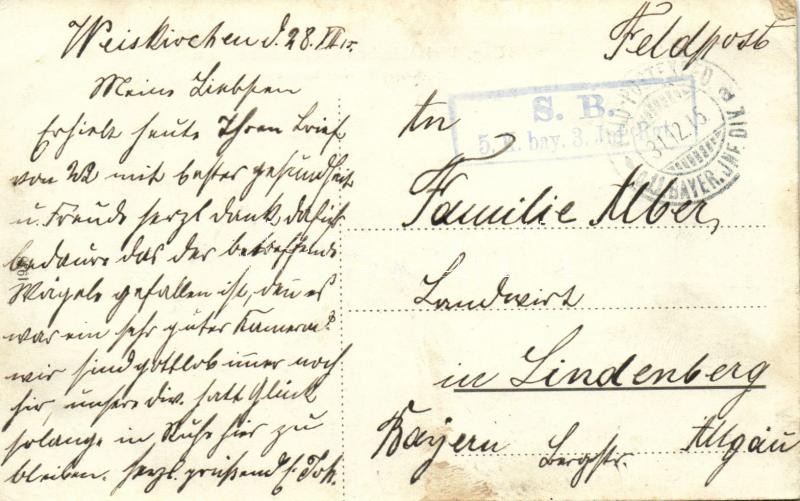 Weiskirchen d. 28. XII 15
Meine Liebsten
Erhielt heute Ihren Brief
von 22 mit bester gesundheit
u. Freude herzl dank dafür
bedaure das der betreffende
Wägele gefallen ist, den es
war ein sehr guter Kamerad
wir sind gottlob immer noch
hir, unsere div. hatt Glück
solange in Ruhe hier zu
bleiben. herzl. grüßend E. Joh.
Feldpost
S. B.
5. K. bay. 3. Inf. Rgt.
31.12.15
BAYER. INF. DIV.
An
Familie Alber,
Landwirt
in Lindenberg
Bayern Bergstr. Allgäu